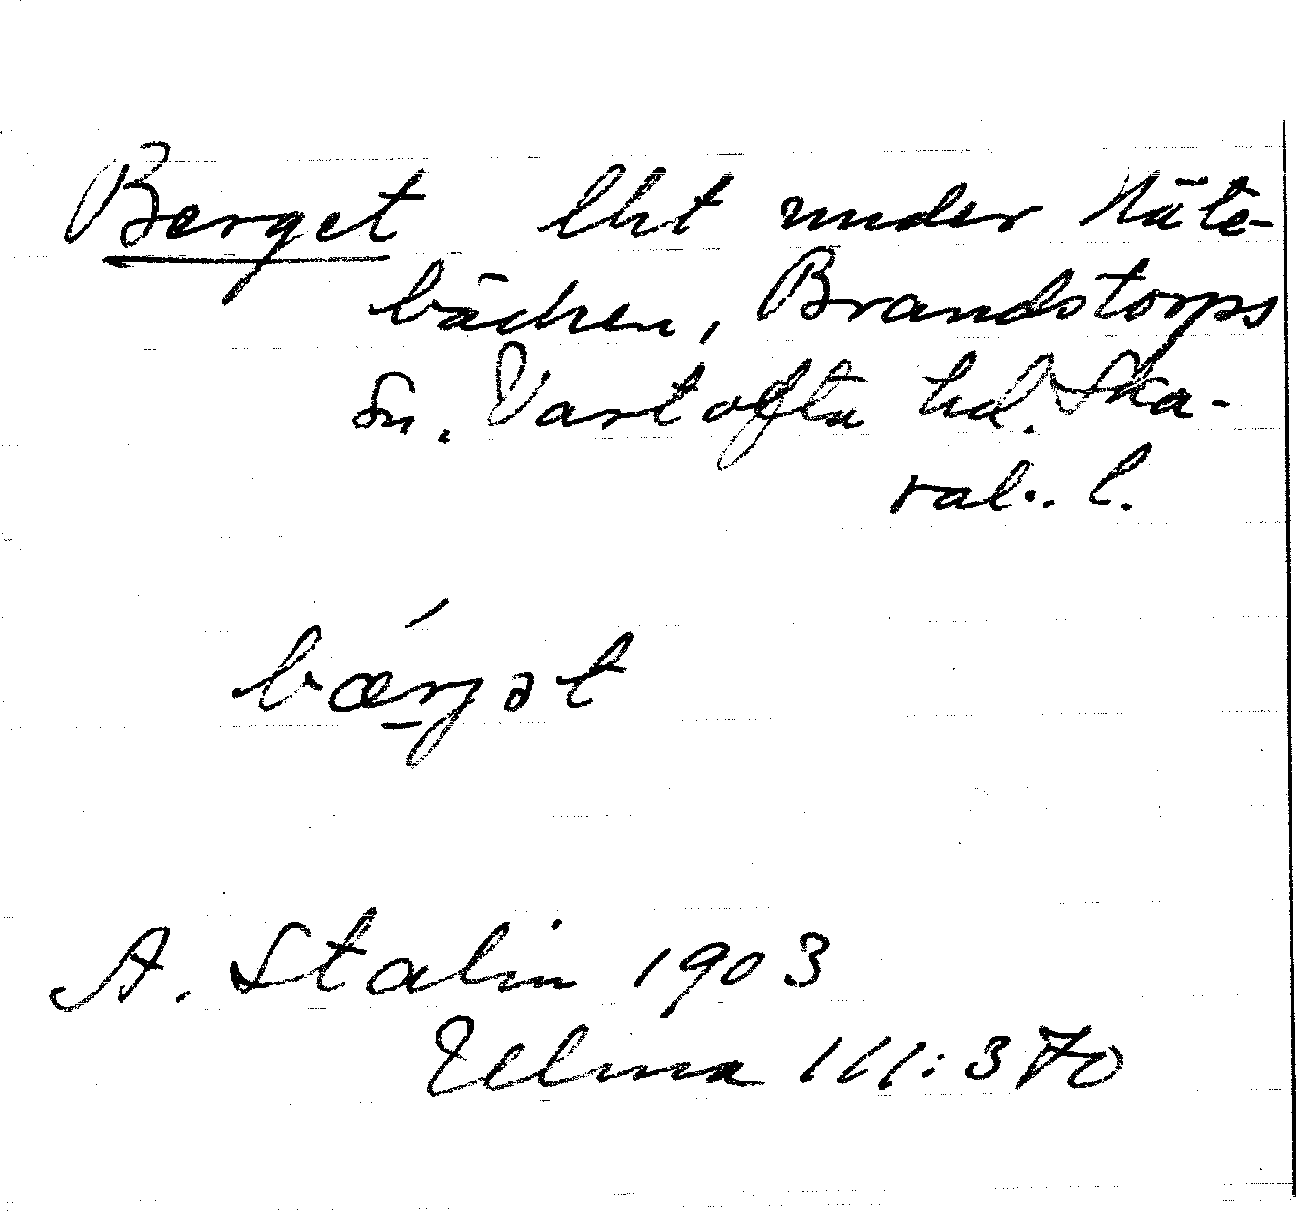 Berget lht under Näte-
bäcken, Brandstorps
sn. Vartofta hd. Ska-
rab. l.
bærjət
A. Stalin 1903
Ulma 111:370